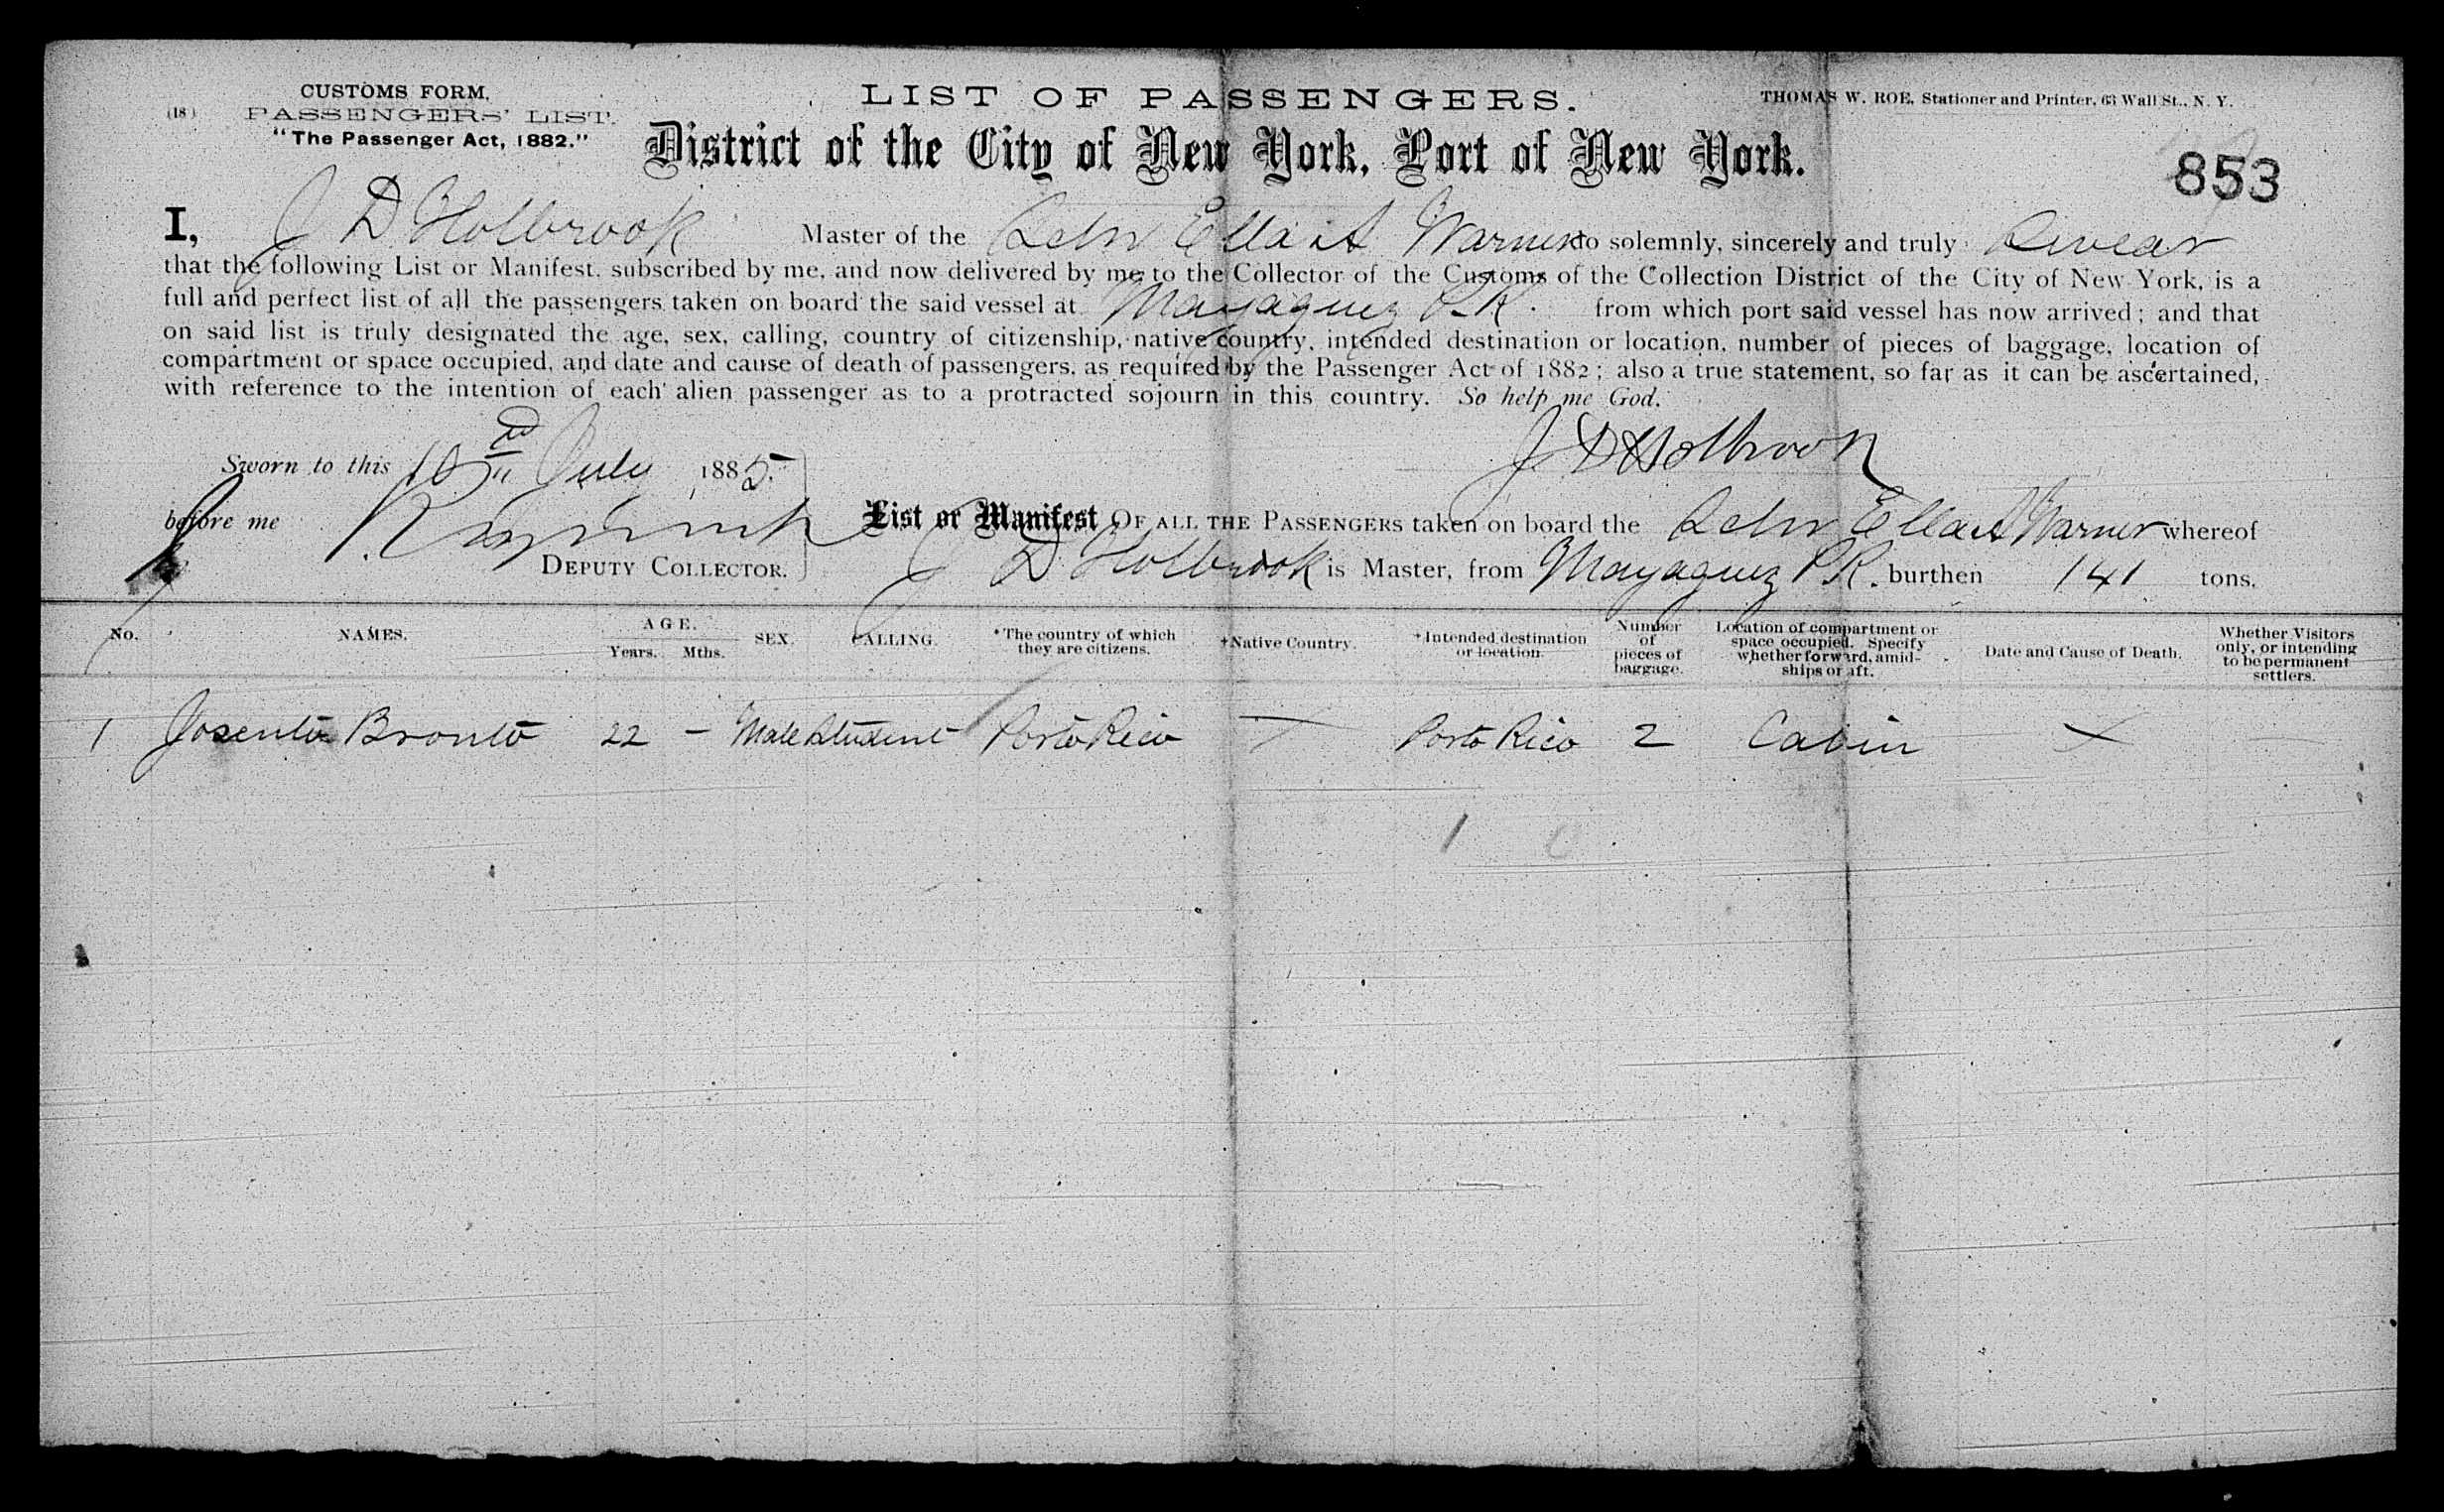 CUSTOMS FORM.
(18)
PASSENGERS' LIST.
"The Passenger Act, 1882."
LIST OF PASSENGERS.
THOMAS W. ROE, Stationer and Printer, 63 Wall St., N. Y.
District of the City of New York, Port of New York.
853
I, J D Holbrook Master of the Schr Ella A Warner do solemnly, sincerely and truly Swear
that the following List or Manifest, subscribed by me, and now delivered by me to the Collector of the Customs of the Collection District of the City of New York, is a
full and perfect list of all the passengers taken on board the said vessel at Mayaguez P.R. from which port said vessel has now arrived; and that
on said list is truly designated the age, sex, calling, country of citizenship, native country, intended destination or location, number of pieces of baggage, location of
compartment or space occupied, and date and cause of death of passengers, as required by the Passenger Act of 1882; also a true statement, so far as it can be ascertained,
with reference to the intention of each alien passenger as to a protracted sojourn in this country. So help me God.
J D Holbrook
Sworn to this July 1885.
before me
DEPUTY COLLECTOR.
List or Manifest OF ALL THE PASSENGERS taken on board the Schr Ella A Warner whereof
J D Holbrook is Master, from Mayaguez P.R. burthen 141 tons.
No. NAMES. AGE. Years. Mths. SEX. CALLING. *The country of which they are citizens. †Native Country. *Intended destination or location. Number of pieces of baggage. Location of compartment or space occupied. Specify whether forward, amidships or aft. Date and Cause of Death. Whether Visitors only, or intending to be permanent settlers.
1 Josento Bronto 22 – Male Student Porto Rico – Porto Rico 2 Cabin x –
1